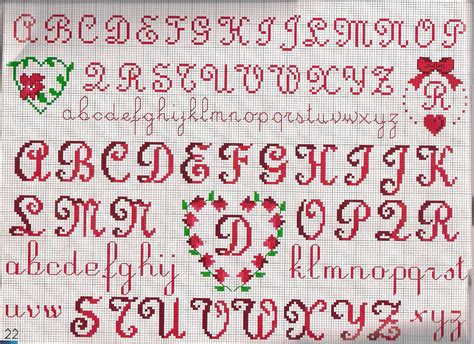 ABCDEFGHIJLMNOP
QRSTUVWXYZ
R
abcdefghijklmnopqrstuvwxyz
ABCDEFGHIJK
LMN
D
OPQR
abcdefghij
klmnopqrst
uvw
STUVWXYZ
xyz
22